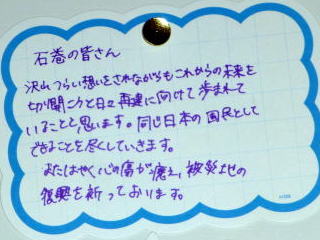 石巻の皆さん
沢山つらい想いをされながらもこれからの未来を
切り開こうと日々再建に向けて歩まれて
いることと思います。同じ日本の国民として
できることを尽くしていきます。
またはやく、心の傷が癒え、被災地の
復興を祈っております。